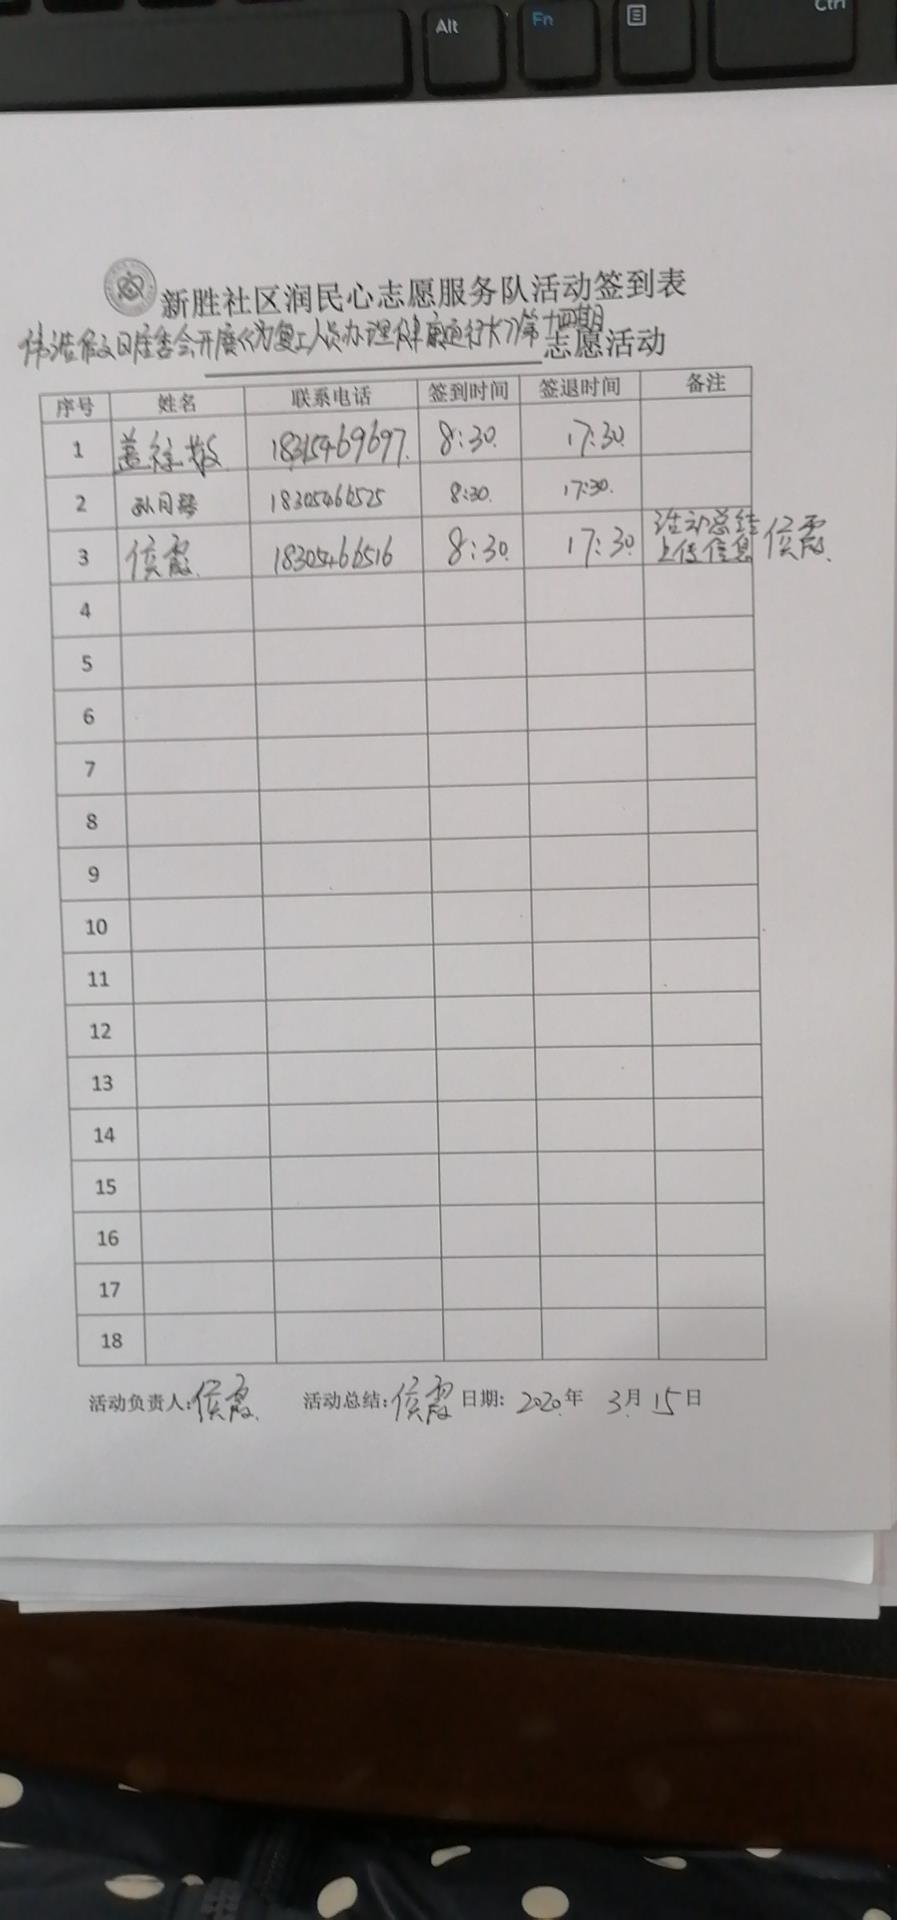 Alt Fn Ctrl
新胜社区润民心志愿服务队活动签到表
伟浩假日居委会开展《为复工人员办理健康通行卡》第十四期志愿活动
序号 姓名 联系电话 签到时间 签退时间 备注
1 18315469697 8:30 17:30
2 孙月 18305466525 8:30 17:30
3 侯霞 18305466516 8:30 17:30 活动总结 上传信息 侯霞
4
5
6
7
8
9
10
11
12
13
14
15
16
17
18
活动负责人:侯霞 活动总结:侯霞 日期: 2020年 3月 15日